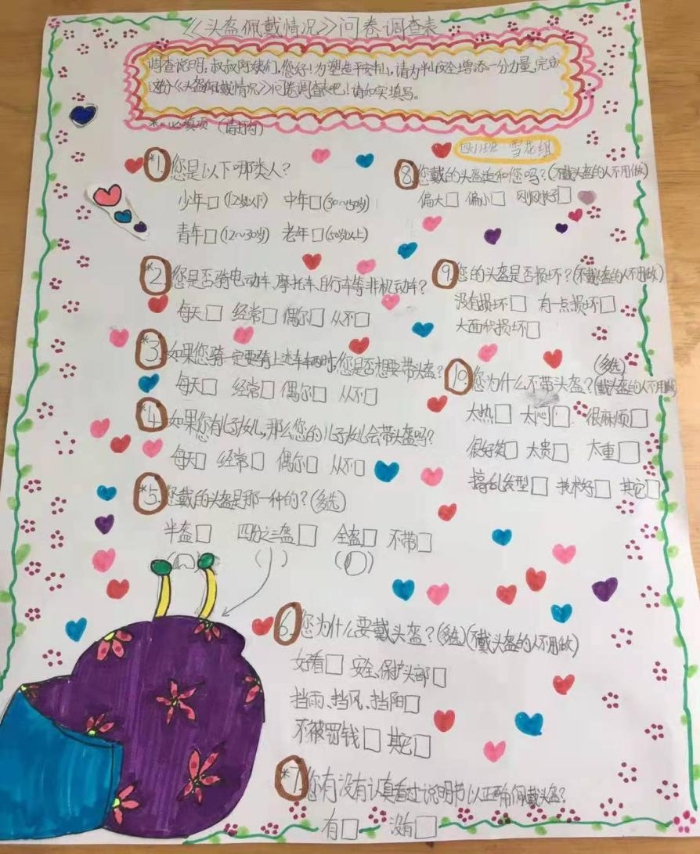 《头盔佩戴情况》问卷调查表
调查说明:叔叔阿姨们,您好!为塑造平安
请为 安全增添一分力量,完成
这份《头盔佩戴情况》问卷调查吧!请如实填写。
*=必填项 (请打
四(1)班
*1.您是以下哪类人?
少年□(12岁以下) 中年□(30~50岁)
青年□(12~30岁) 老年□(50岁以上)
*2.您是否骑电动车、摩托车、自行车等非机动车?
每天□ 经常□ 偶尔□ 从不□
*3.如果您骑 您是否想要带头盔?
每天□ 经常□ 偶尔□ 从不□
*4.如果你有儿子女儿,那么您的儿子女儿会带头盔吗?
每天□ 经常□ 偶尔□ 从不□
*5.您戴的头盔是那一种的?(多选)
半盔□ 四分之三盔□ 全盔□ 不带□
( ) ( ) ( )
6.您为什么要戴头盔?(多选)(不戴头盔的人不用做)
好看□ 安全、保护头部□
挡雨、挡风、挡阳□
不被罚钱□ 其它□
*7.您有没有认真看过说明书以正确佩戴头盔?
有□ 没有□
8.您戴的头盔适和您吗?(不戴头盔的人不用做)
偏大□ 偏小□ 刚刚好□
9.您的头盔是否损坏?(不戴头盔的人不用做)
没有损坏□ 有一点损坏□
大面积损坏□
(多选)
10.您为什么不带头盔?(戴头盔的人不用做)
太热□ 太闷□ 很麻烦□
很好笑□ 太贵□ 太重□
搞乱发型□ 技术好□ 其它□